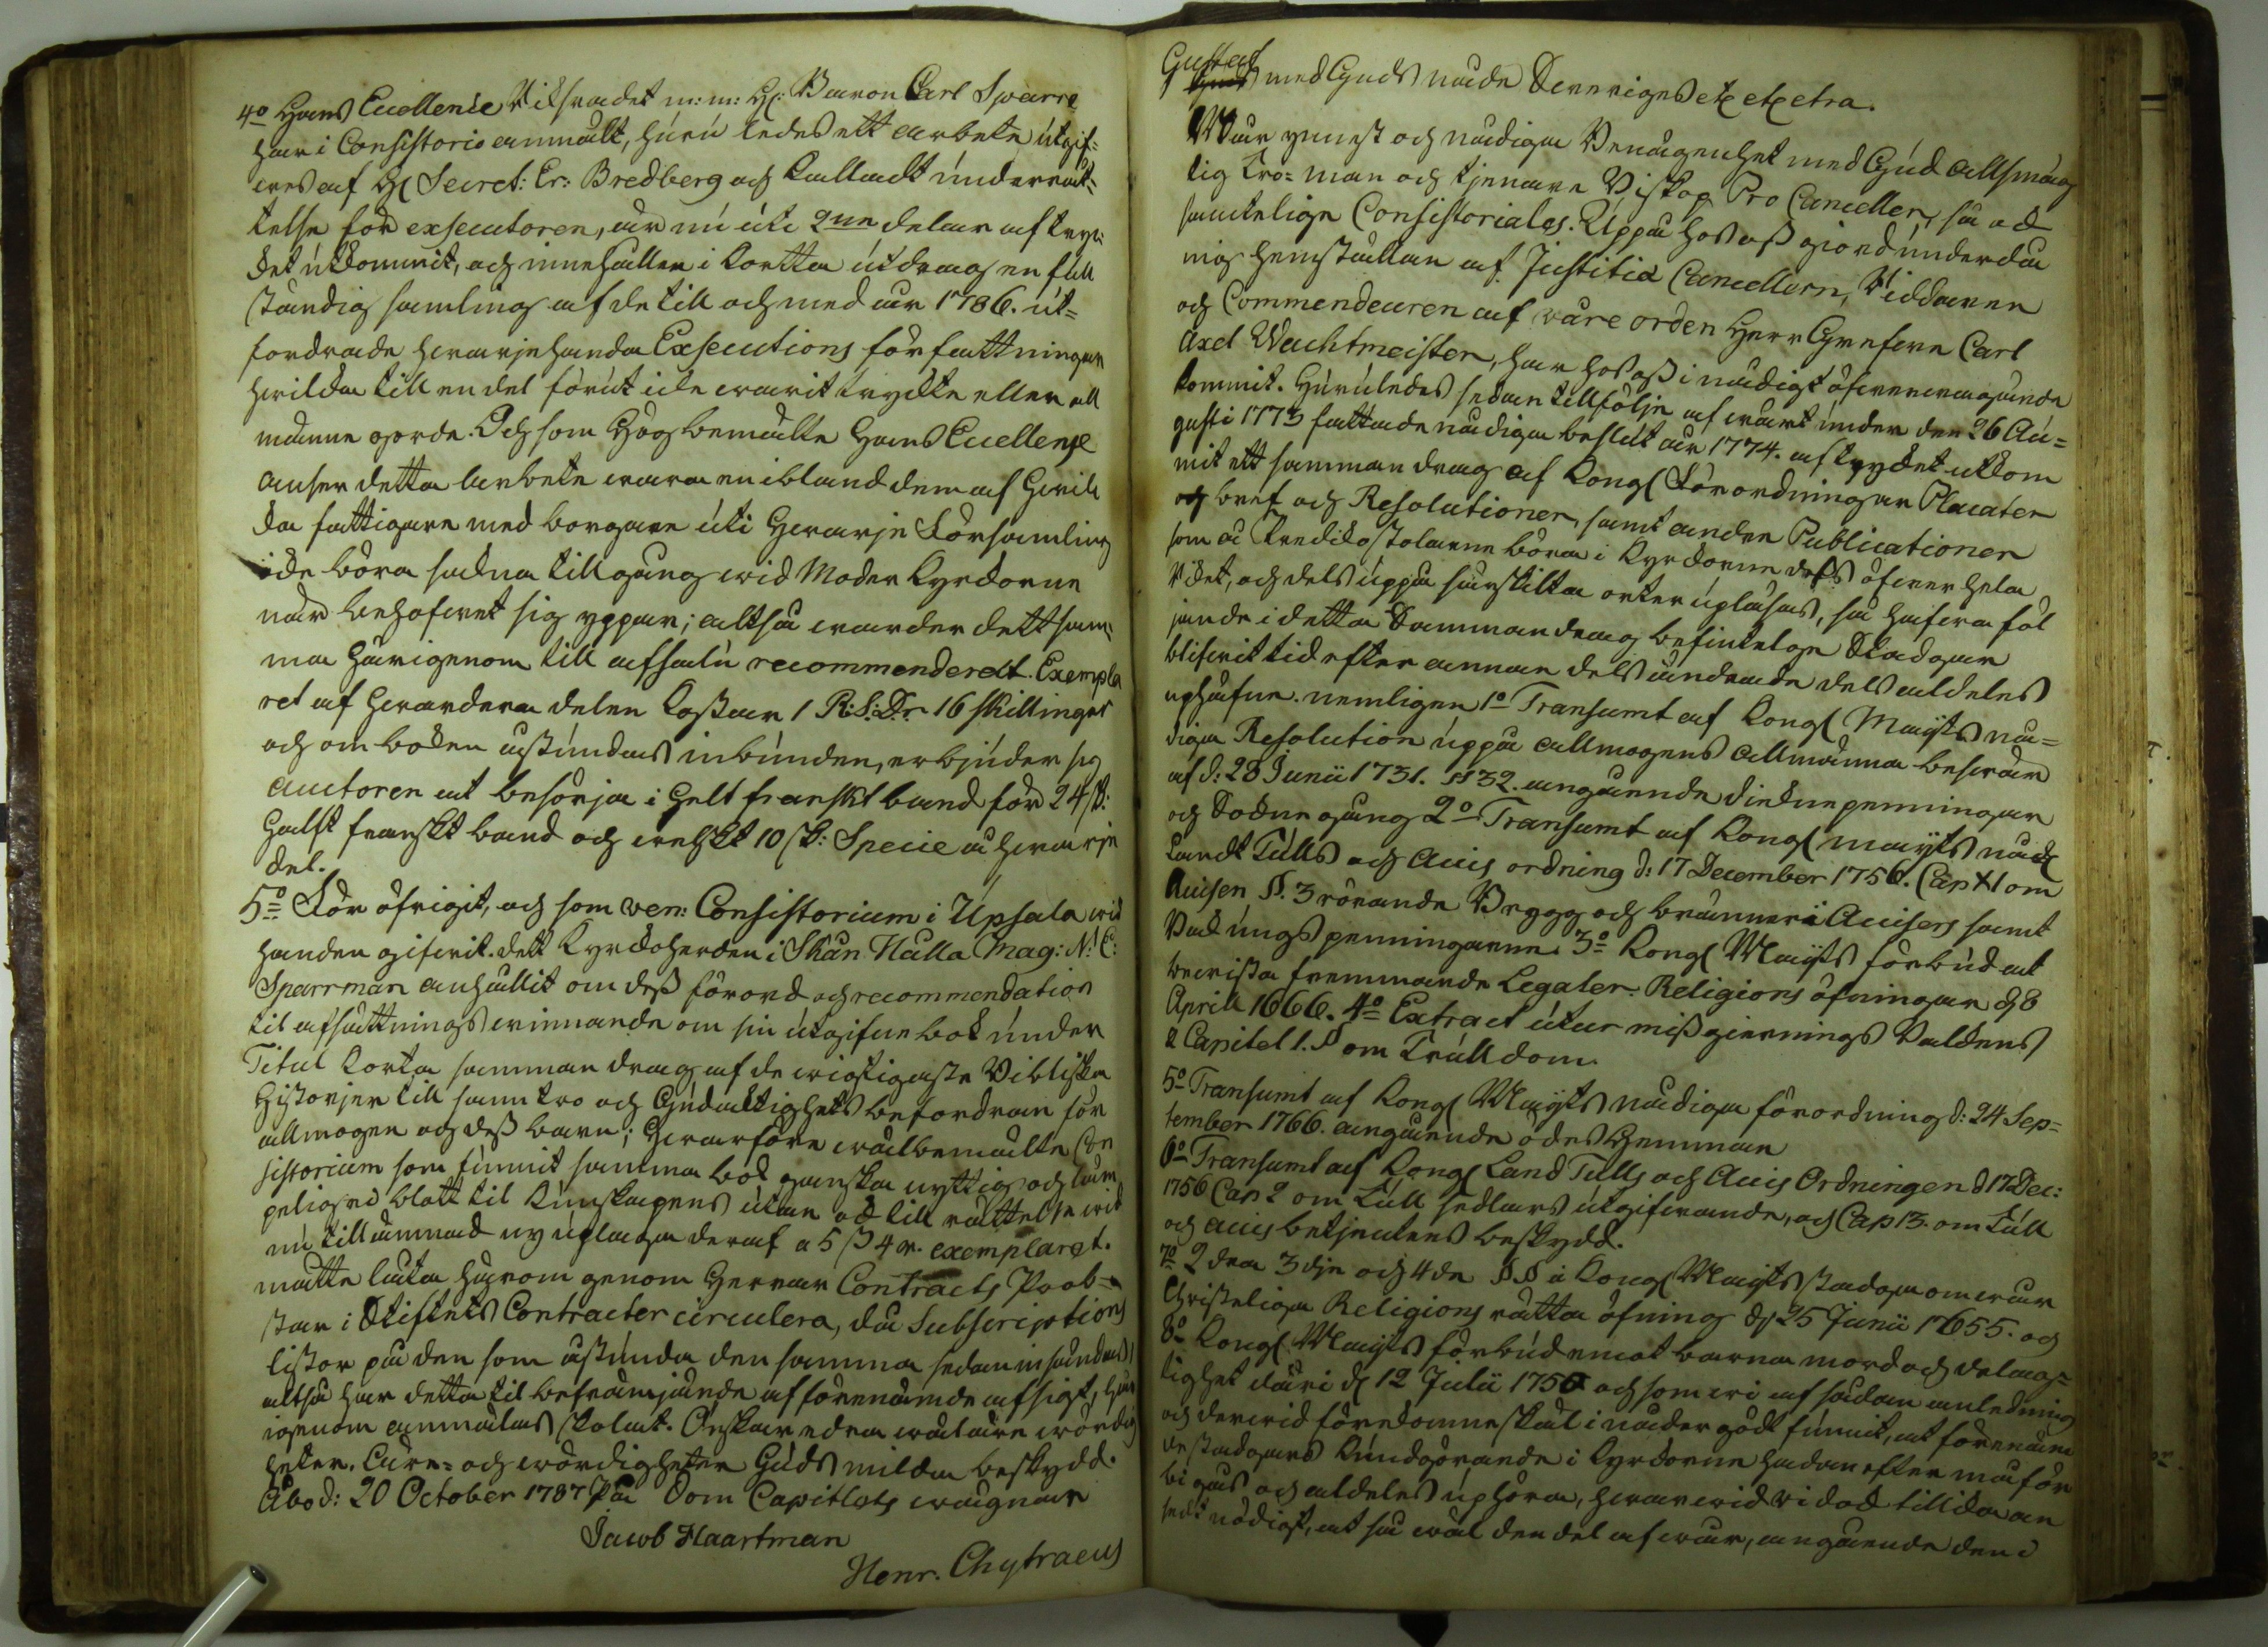 4o Hans Excellence Riksrådet m: m: H: Baron Carl Sparre
har i Consistorio anmält, huru ledes ett arbete utgif=
wes af H Secret: Er: Bredberg och kalladt underrät=
telse för exsecutoren, är nu uti 2ne delar af tryc=
ket utkommit, och innehåller i korta utdrag en full
ständig samling af de till och med år 1786. ut=
fordrade hwarjehanda Exsecutions författningar
hwilka till en del förut icke warit tryckte eller all
männe gorde. Och som Högbemälte Hans Excellence
anser detta arbete wara en ibland dem af hwil
ka fattigare med borgare uti hwarje Församling
icke böra sakna tillgång wid Moder Kyrkorne
när behofwet sig yppar; altså warder dett sam¬
ma härigenom till afsalu recommenderat. Exempla
ret af hwardera delen kostar 1 R:S:Dr 16 skillingar
och om boken åstundas inbunden, erbjuder sig
auctoren at besörja i helt franskt band för 24 sk:
halft franskt band och welskt 10 sk: Specie å hwarje
del.
5o För öfrigit, och som ven: Consistorium i Upsala wid
handen gifwit. dett Kyrkoherden i Skån Nälla Mag: N: C:
Sparrman anhållit om dess förord och recommendation
til afsättnings winnande om sin utgifne bok under
Titul Korta samman drag af de wiktigaste Bibliska
Historjer till sann tro och Gudaktighets befordran för
allmogen och dess barn; hwarföre wälbemälte Con
sistorium som funnit samma bok ganska nyttig och läm
pelig ej blott til kunskapens utan ock till rättelse wid
nu tillämnad ny uplaga deraf a 5 ß 4 r. exemplaret.
måtte låta härom genom Herrar Contracts Prob=
star i Stiftets Contracter circulera, då Subscriptions
listor på den som åstunda den samma sedan insändas
altså har detta til befrämjande af förenämde afsigt, här
igenom anmälas skolat. Önskar edra wälärewördig
heter. Läre= och wördigheter Guds milda beskydd.
Åbo d: 20 October 1787 På Dom Capitlets wägnar
Jacob Haartman
Henr. Chytraeus
Gustaf
med Guds nåde Sveriges etc etc etra.
Wår ynnest och nådiga Benägenhet med Gud allsmäg
tig Tro= man och tjenare Biskop Pro Canceller, så ock
samtelige Consistoriales. Uppå hos oss giord underdå
nig hemställan af Justitiæ Cancellern, Riddaren
och Commendeuren af wåre orden Herr Grefwe Carl
Axel Wachtmeister, har hos oss i nådigt öfwerwägande
kommit. Huruledes sedan tillfölje af wårt under den 26 Au=
gusti 1773 fattade nådiga beslut år 1774. af trycket utkom
mit ett samman drag af Kongl Förordningar Placater
och bref och Resolutioner, samt andre Publicationer
som å Predikostolarne böra i Kyrkorne dels öfwer hela
Riket, och dels uppå särskilta orter upläsas, så hafwa föl
jande i detta Sammandrag befintelige Stadgar
blifwit tid efter annan dels ändrade dels aldeles
uphäfne. nemligen 1o Transumt af Kongl Maijts nå=
diga Resolution uppå allmogens allmänna beswär
af d: 28 Junii 1731. §§ 32. angående diekne penningar
och Sokne gång 2o Transumt af Kongl maijts nåd
Landt Tulls och Accis ordning d: 17 December 1756. Cap XI om
Accisen §. 3 rörande Brygg och bränneri Accisers samt
Bakungs penningarne. 3o Kongl Maijts förbud at
bewista fremmande Legater. Religions öfningar d 8
April 1666. 4o Extract utur missgiernings Balkens
2 Capitel 1. § om Trulldom.
5o Transumt af Kongl Maijts nådiga förordning d: 24 Sep=
tember 1766. angående ödes Hemman
6o Transumt af Kongl Land Tulls och Accis Ordningen d 17 Dec:
1756 Cap 2 om Tull sedlars utgifwande, och Cap 13. om Tull
och accis betjentens beskydd.
7o 2 dra 3 dje och 4 de §§ i Kongl Maijts stadga om wår
Christeliga Religions rätta öfning d 25 Junii 1655. och
8o Kongl Maijts förbud emot barna mord och delag=
tighet däri d 12 Julii 1750 och som wi af sådan anledning
och derwid förekomne skäl i nåder godt funnit, at förenäm
de stadgars kundgörande i Kyrkorne hädan efter må för
bi gås och aldeles uphöra, hwarwid Wi dock tillika an
sedt nödigt, at så wäl den del af wår, angående den d